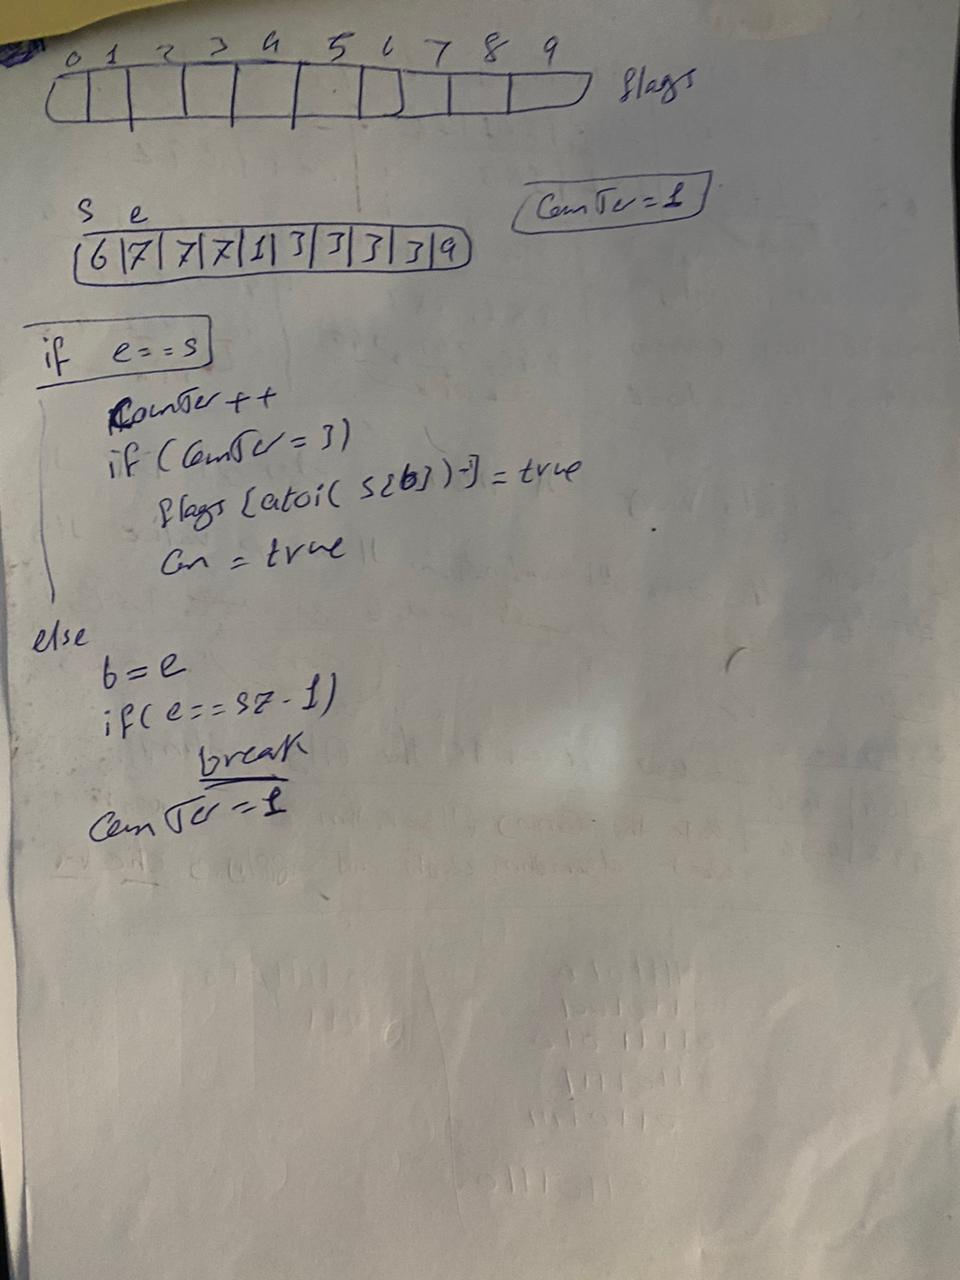 0 1 2 3 4 5 6 7 8 9
flags
counter = 1
s e
6 7 7 7 1 3 3 3 3 9
if e==s
counter++
if (counter = 3)
flags [atoi( s[b])-] = true
can = true
else
b = e
if( e == sz - 1)
break
counter = 1